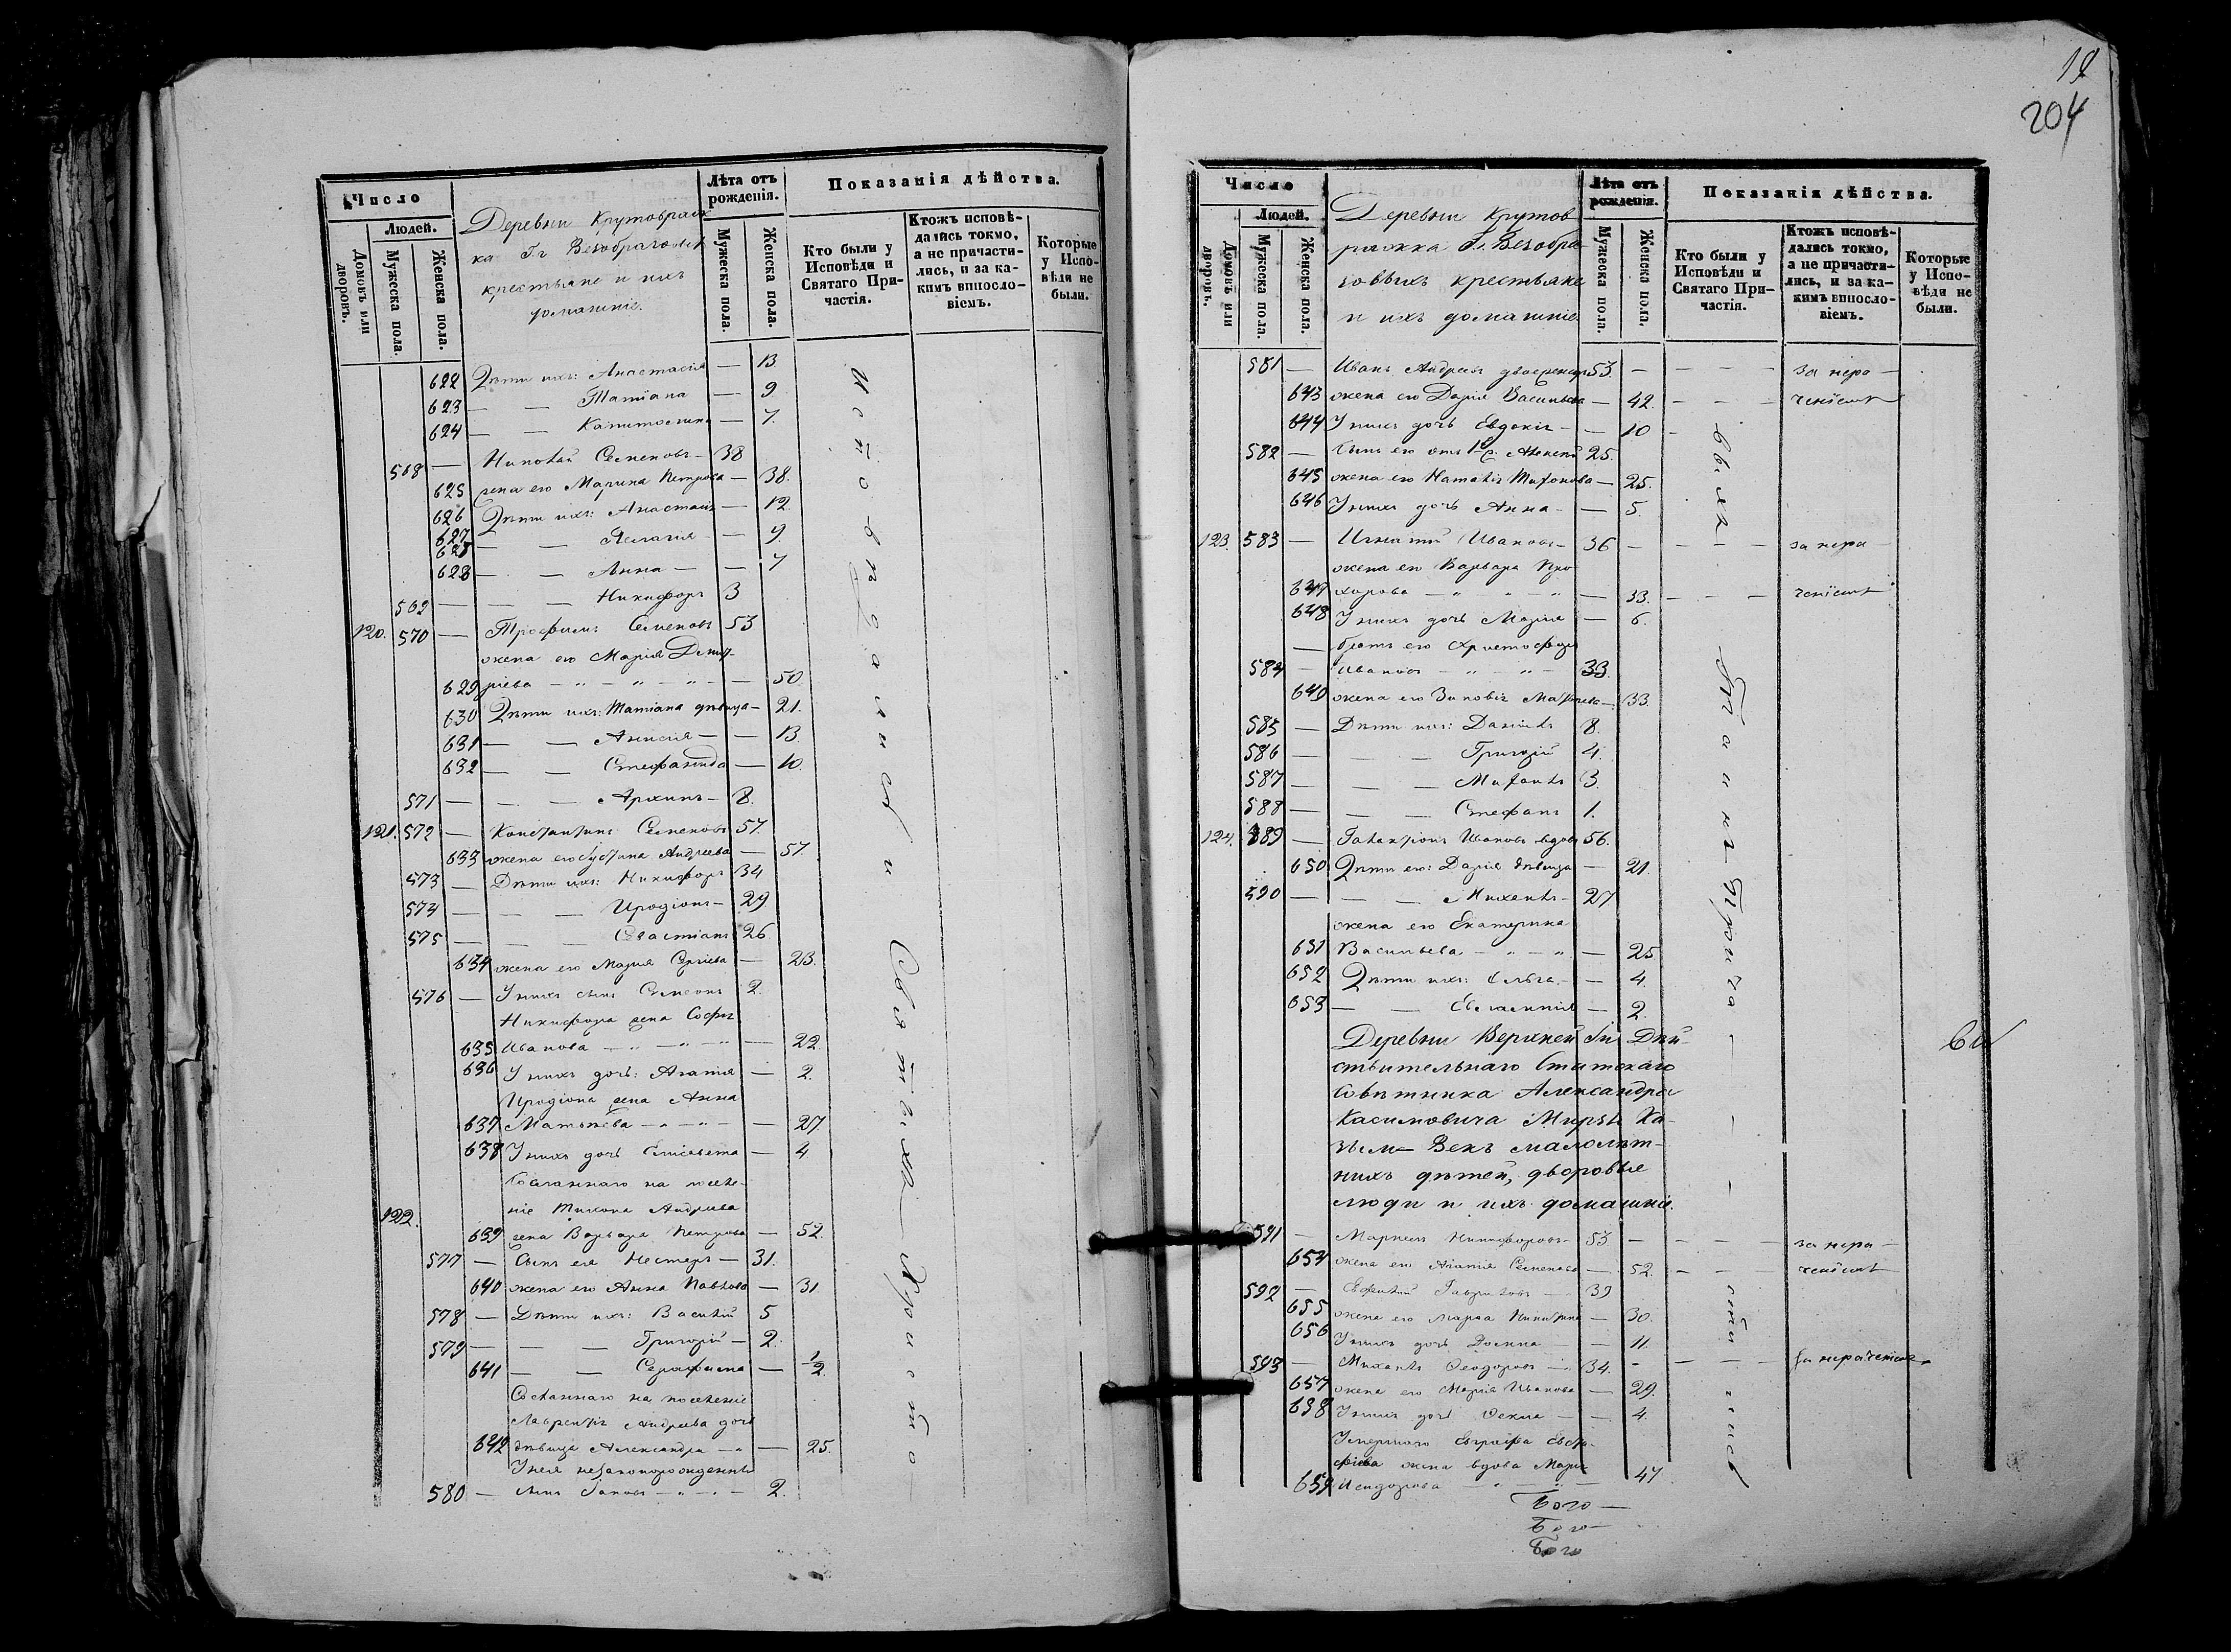 Число
Людей.
Домовъ или дворовъ.
Мужеска пола.
Женска пола.
Деревни Крутовраж
ка Гг Безобразовых
крестьяне и ихъ
домашніе.
Лѣта отъ рожденія.
Мужеска пола.
Женска пола.
Показанія дѣйства.
Кто были у Исповѣди и Святаго Причастія.
Ктожъ исповѣдались токмо, а не причастились, и за какимъ винословіемъ.
Которые у Исповѣди не были.
622 Дѣти ихъ: Анастасія — 13.
623 — — Татіана — 9.
624 — — Капитолина — 7.
568 — Николай Семеновъ — 38
625 жена его Марина Петрова — 38.
626 Дѣти ихъ: Анастасія — 12.
627 — — Пелагія — 9.
628 — — Анна — — 7
569 — — — Никифоръ 3
120. 570 — Трофимъ Семеновъ 53
жена его Марія Димит-
629 ріева — " — " — " — — 50
630 Дѣти ихъ: Татіана дѣвица — 21.
631 — — Анисія — — 13.
632 — — Стефанида — 10.
571 — — — Архипъ — 8.
121. 572 — Константинъ Семеновъ 57.
633 жена его Іустина Андреева — 57.
573 — Дѣти ихъ: Никифоръ 34
574 — — — Иродіонъ — 29
575 — — — Севастіанъ 26
634 жена его Марія Сергіева — 23.
576 — У нихъ сынъ Симеонъ 2.
Никифора жена Софія
635 Иванова — " — " — " — 22.
636 У нихъ дочь: Агапія — 2.
Иродіона жена Анна
637 Матвѣева — " — " — — 27.
638 У нихъ дочь Елисавета — 4
Сосланнаго на поселе-
122. ніе Тихона Андреева
639 жена Варвара Петрова — 52.
577 — Сынъ ея Несторъ — 31.
640 жена его Анна Павлова — 31
578 — Дѣти ихъ: Василій 5
579 — — — Григорій — 2.
641 — — Серафима — 1/2.
Сосланнаго на поселеніе
Лаврентія Андреева дочь
642 дѣвица Александра — " — 25.
У нея незаконорожденный
580 — сынъ Іаковъ — " — " — 2.
Исповѣдались и Святыхъ Христо—
19
204
Число
Людей.
Домовъ или дворовъ.
Мужеска пола.
Женска пола.
Деревни Крутов
ражка Г. Безобра
зовыхъ крестьяне
и ихъ домашніе
Лѣта отъ рожденія.
Мужеска пола.
Женска пола.
Показанія дѣйства.
Кто были у Исповѣди и Святаго Причастія.
Ктожъ исповѣдались токмо, а не причастились, и за какимъ винословіемъ.
Которые у Исповѣди не были.
581 — Иванъ Андреевъ двоеженецъ 53. — — — — за нера—
643 жена его Дарія Васильева — 42. — — — ченіемъ
644 У нихъ дочь Евдокія — — 10 —
582 — Сынъ его отъ 1й ж. Алексѣй 25.
645 жена его Наталія Тихонова — 25.
646 У нихъ дочь Анна — — 5.
123. 583 — Игнатій Ивановъ — 36 — — — — за нера—
жена его Варвара Про
647 хорова — " — " — " — 33. — — — ченіемъ
648 У нихъ дочь Марія — 6.
— братъ его Христофоръ
584 — Ивановъ — " — " — 33.
649 жена его Зиновія — 33.
585 — Дѣти ихъ: Даніилъ 8.
586 — — — Григорій 4.
587 — — — Михаилъ 3.
588 — — — Стефанъ 1.
124. 589 — Галактіонъ Ивановъ вдовъ 56.
650 Дѣти его: Дарія дѣвица — 21.
590 — — — Михаилъ — 27
жена его Екатерина
651 Васильева — " — " — — 25
652 Дѣти ихъ: Ольга — — 4.
653 — — Евлампія — 2.
Деревни Верхней Дѣй-
ствительнаго Статскаго
Совѣтника Александра
Касимовича Мирзы Ка-
зъем-Бекъ малолѣт-
нихъ дѣтей, дворовые
люди и ихъ домашніе.
591 — Маркелъ Никифоровъ — 53 — — — — за нера—
654 жена его Агапія Семенова — 52. — — — ченіемъ
592 — Евфимій Гавриловъ — 39
655 жена его Марѳа Никитина — 30.
656 У нихъ дочь Домна — — 11.
593 — Михаилъ Ѳеодоровъ — 34. — — — — за нераченіемъ
657 жена его Марія Иванова — 29.
658 У нихъ дочь Ѳекла — — 4.
Умершаго Евграфа Евста-
фіева жена вдова Марія
659 Исидорова — " — " — 47.
выхъ Таинъ Пріча— — — стились
Бого—
Бого—
Бого